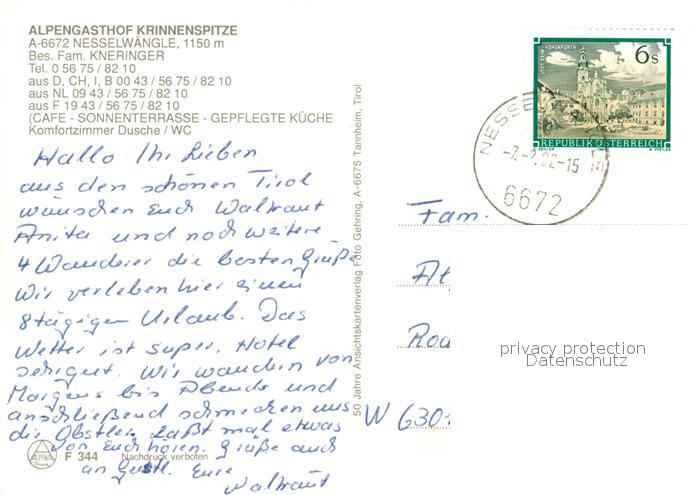 ALPENGASTHOF KRINNENSPITZE
A-6672 NESSELWÄNGLE, 1150 m
Bes. Fam. KNERINGER
Tel. 0 56 75 / 82 10
aus D, CH, I, B 00 43 / 56 75 / 82 10
aus NL 09 43 / 56 75 / 82 10
aus F 19 43 / 56 75 / 82 10
(CAFE - SONNENTERRASSE - GEPFLEGTE KÜCHE
Komfortzimmer Dusche / WC
Hallo Ihr Lieben
aus dem schönen Tirol
wünschen Euch Waltraut
Anita und noch weitere
4 Wanderer die besten Grüße
Wir verleben hier einen
8tägigen Urlaub. Das
Wetter ist super, Hotel
sehr gut. Wir wandern von
Morgens bis Abends und
anschließend schmecken uns
die Obstler. Laßt mal etwas
von Euch hören. Grüße auch
an Eure
Waltraut
F 344 Nachdruck verboten
ALPINA
50 Jahre Ansichtskartenverlag Foto Gehring, A-6675 Tannheim, Tirol
STIFT REIN-HOHENFURTH
6 S
REPUBLIK ÖSTERREICH
NESSE
-15
6672
Fam.
W 630
privacy protection
Datenschutz